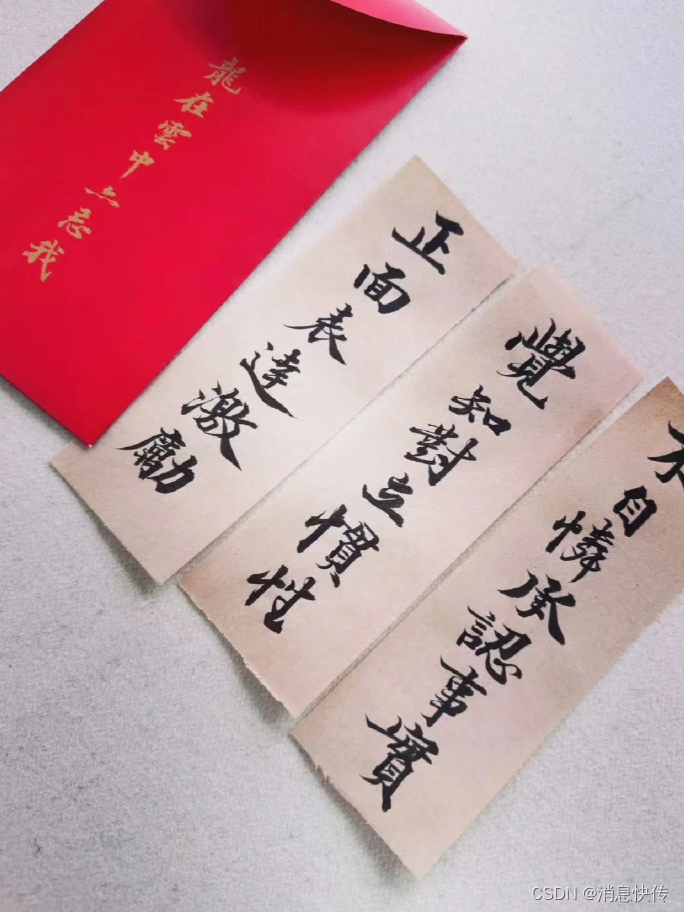 龍在雲中忘我
正面表達激勵
覺知對立慣性
不自憐承認事實
CSDN @消息快传